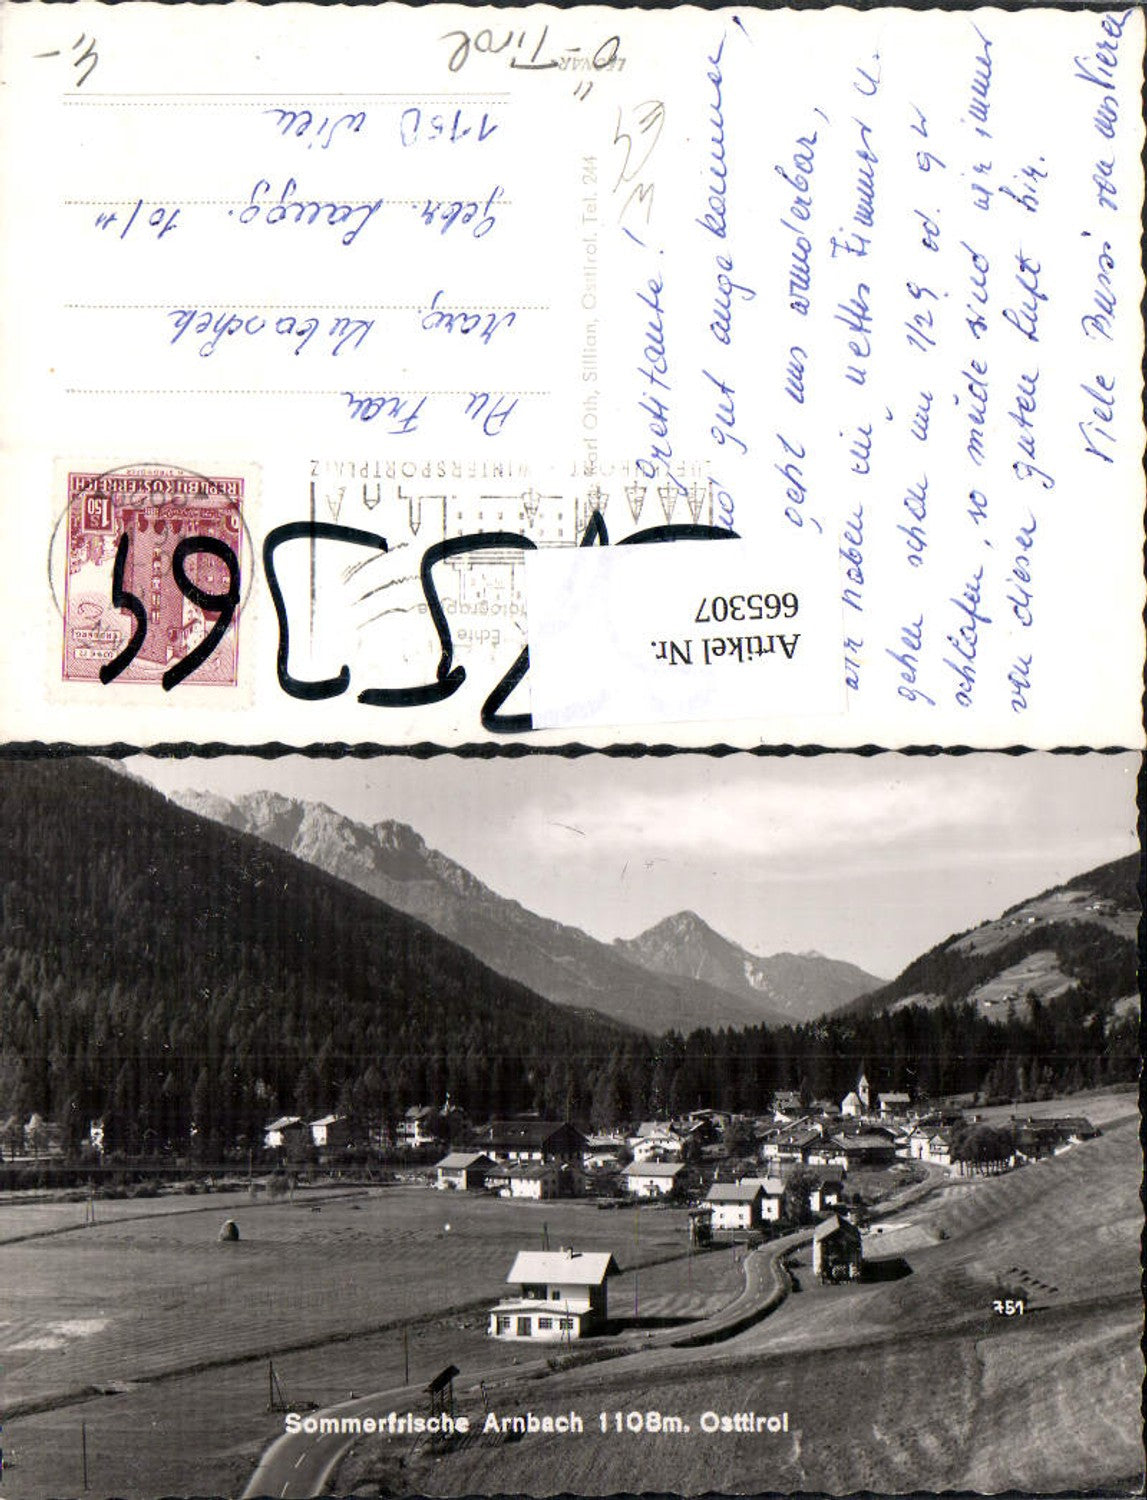 Gretitante!
gut angekommen,
geht uns wunderbar,
wir haben ein nettes Zimmer u.
gehen schon um 1/2 9 od. 9 w
schlafen, so müde sind wir immer
von dieser guten Luft hir.
Viele Bussi von uns Vieren
O-Tirol
4,-
An Frau
Marg. Kubaschek
Gebr. Langg. 10/11
1150 Wien
Karl Oth, Sillian, Osttirol, Tel. 244
LUFTKURORT - WINTERSPORTPLATZ
Echte
REPUBLIK ÖSTERREICH
S 1.50
Artikel Nr.
665307
751
Sommerfrische Arnbach 1108m. Osttirol